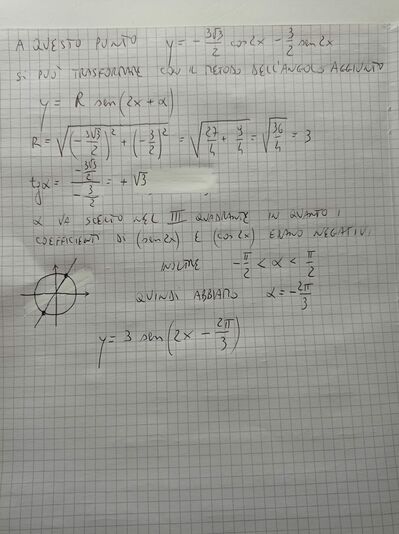 A QUESTO PUNTO y = - 3√3/2 cos2x - 3/2 sen2x
SI PUO' TRASFORMARE CON IL METODO DELL'ANGOLO AGGIUNTO
y = R sen(2x + α)
R = √((-3√3/2)² + (-3/2)²) = √(27/4 + 9/4) = √(36/4) = 3
tgα = (-3√3/2)/(-3/2) = + √3
α VA SCELTO NEL III QUADRANTE IN QUANTO I
COEFFICIENTI DI (sen2x) E (cos2x) ERANO NEGATIVI.
INOLTRE -π/2 < α < π/2
QUINDI ABBIAMO α = -2π/3
y = 3 sen(2x - 2π/3)